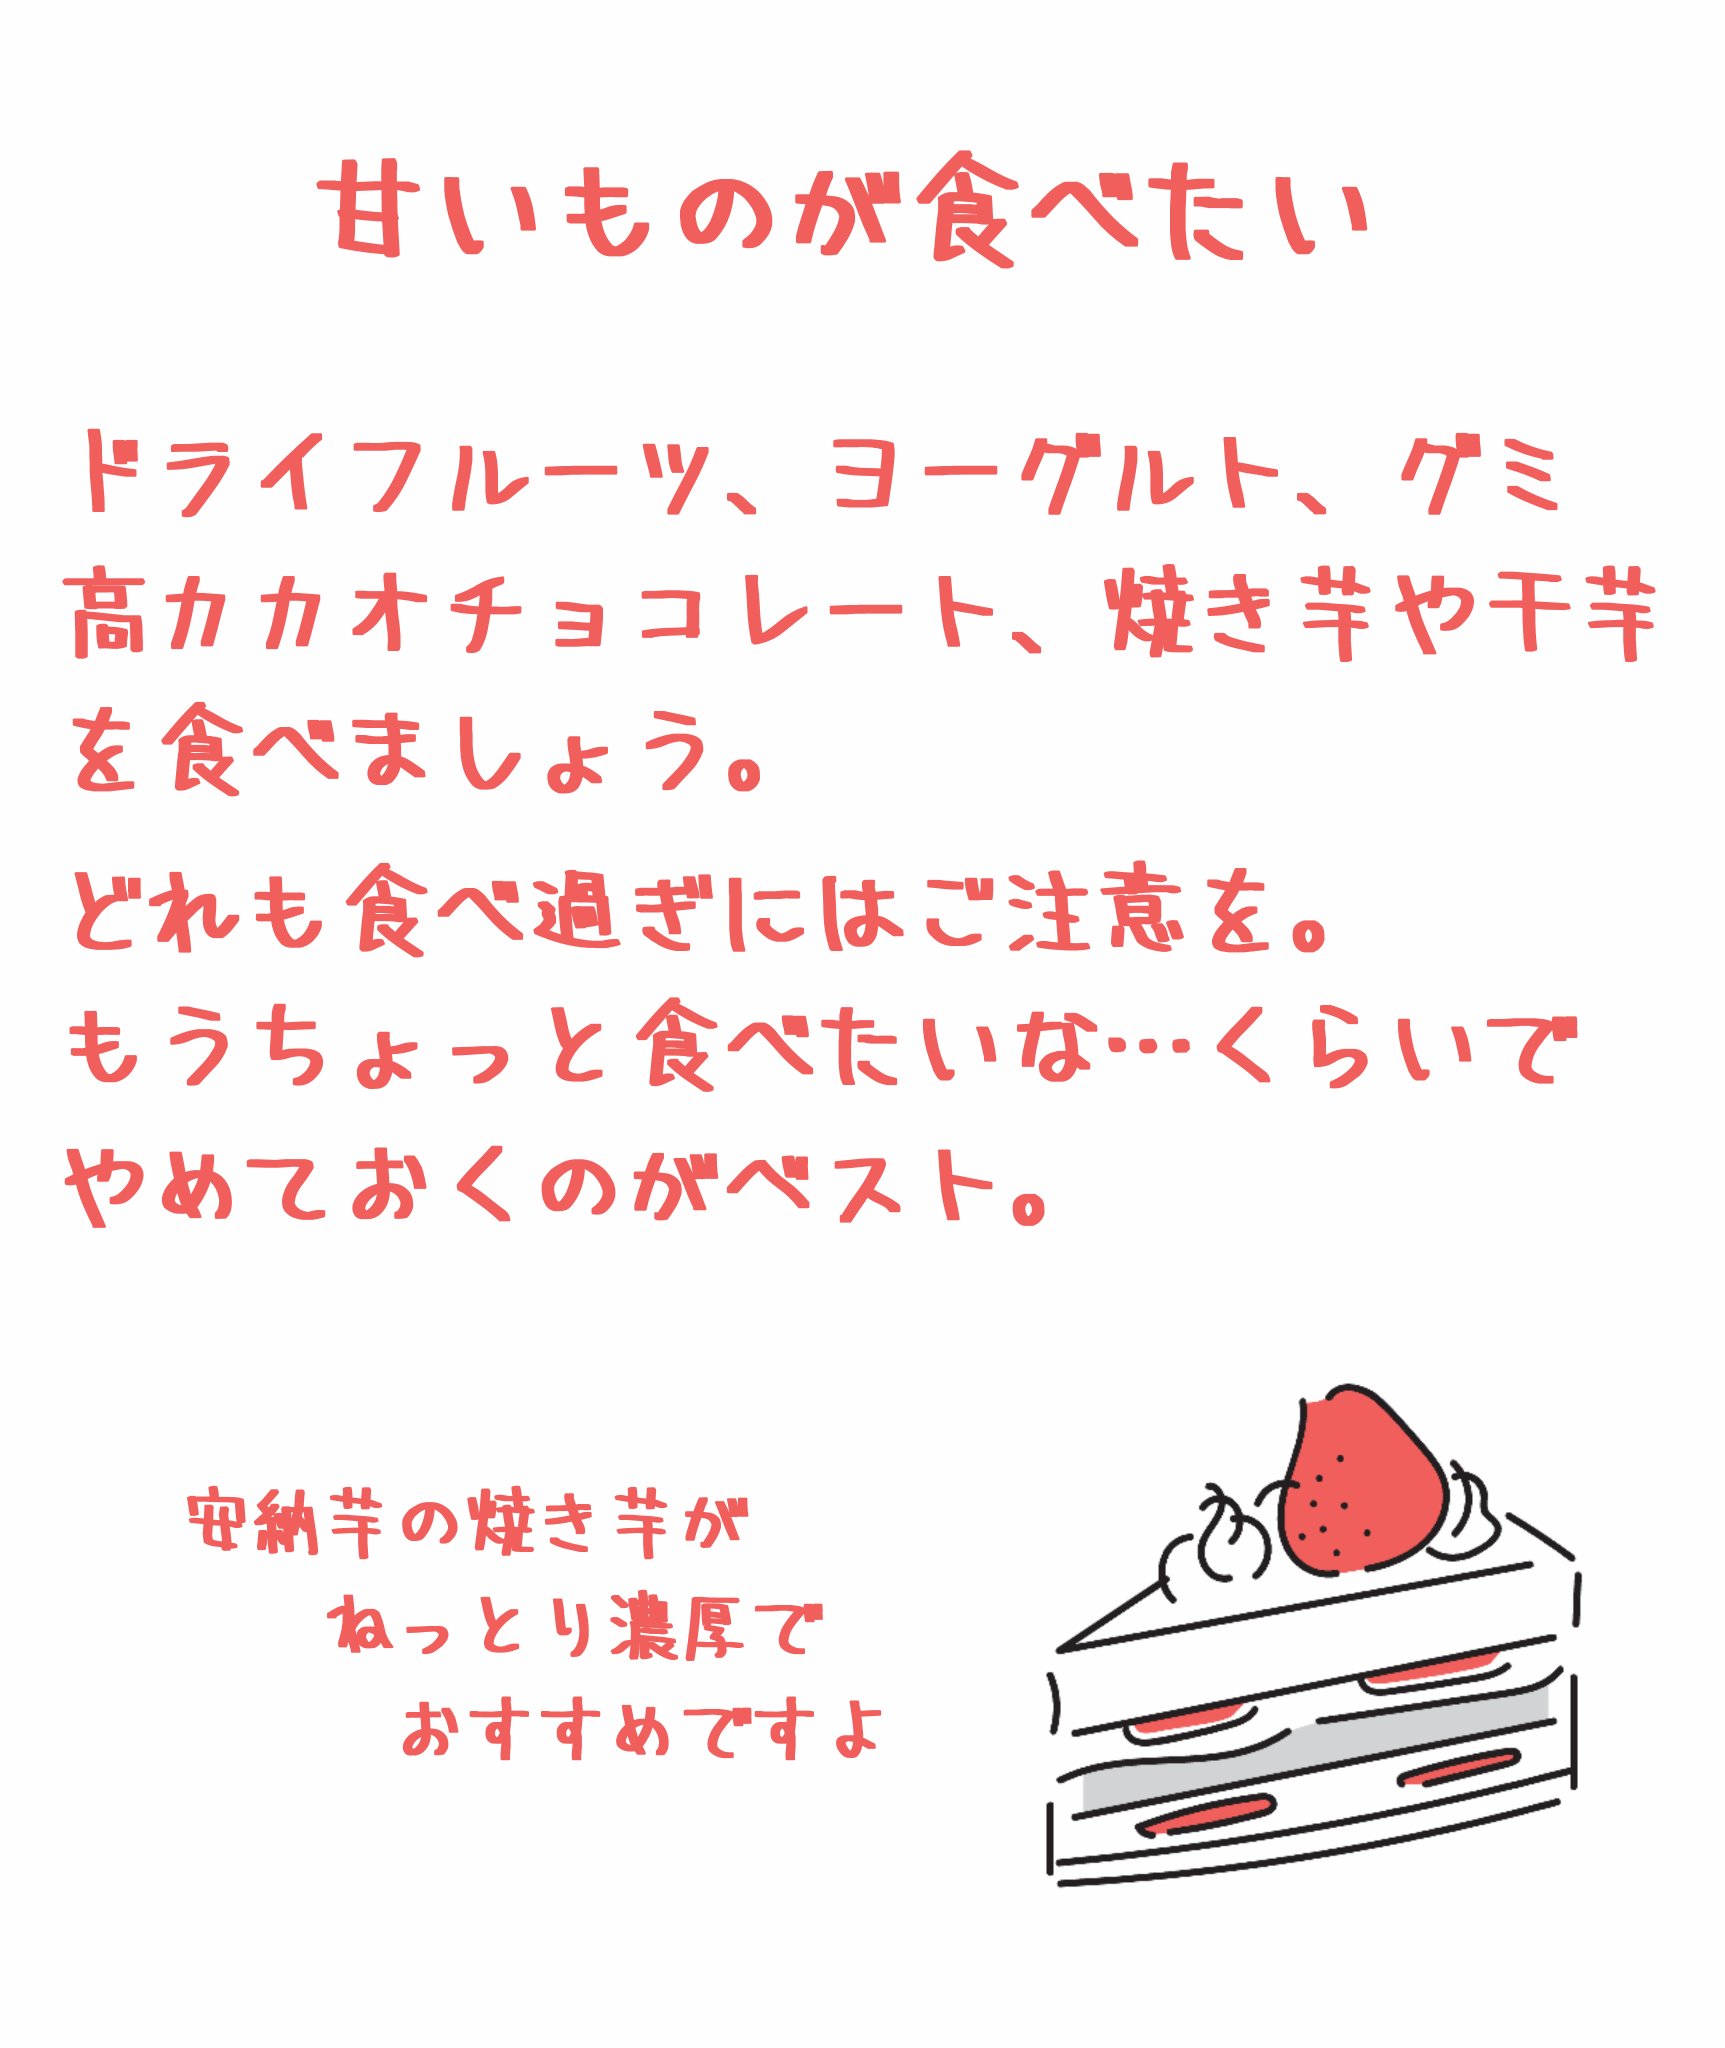 甘いものが食べたい
ドライフルーツ、ヨーグルト、グミ
高カカオチョコレート、焼き芋や干芋
を食べましょう。
どれも食べ過ぎにはご注意を。
もうちょっと食べたいな…くらいで
やめておくのがベスト。
安納芋の焼き芋が
ねっとり濃厚で
おすすめですよ